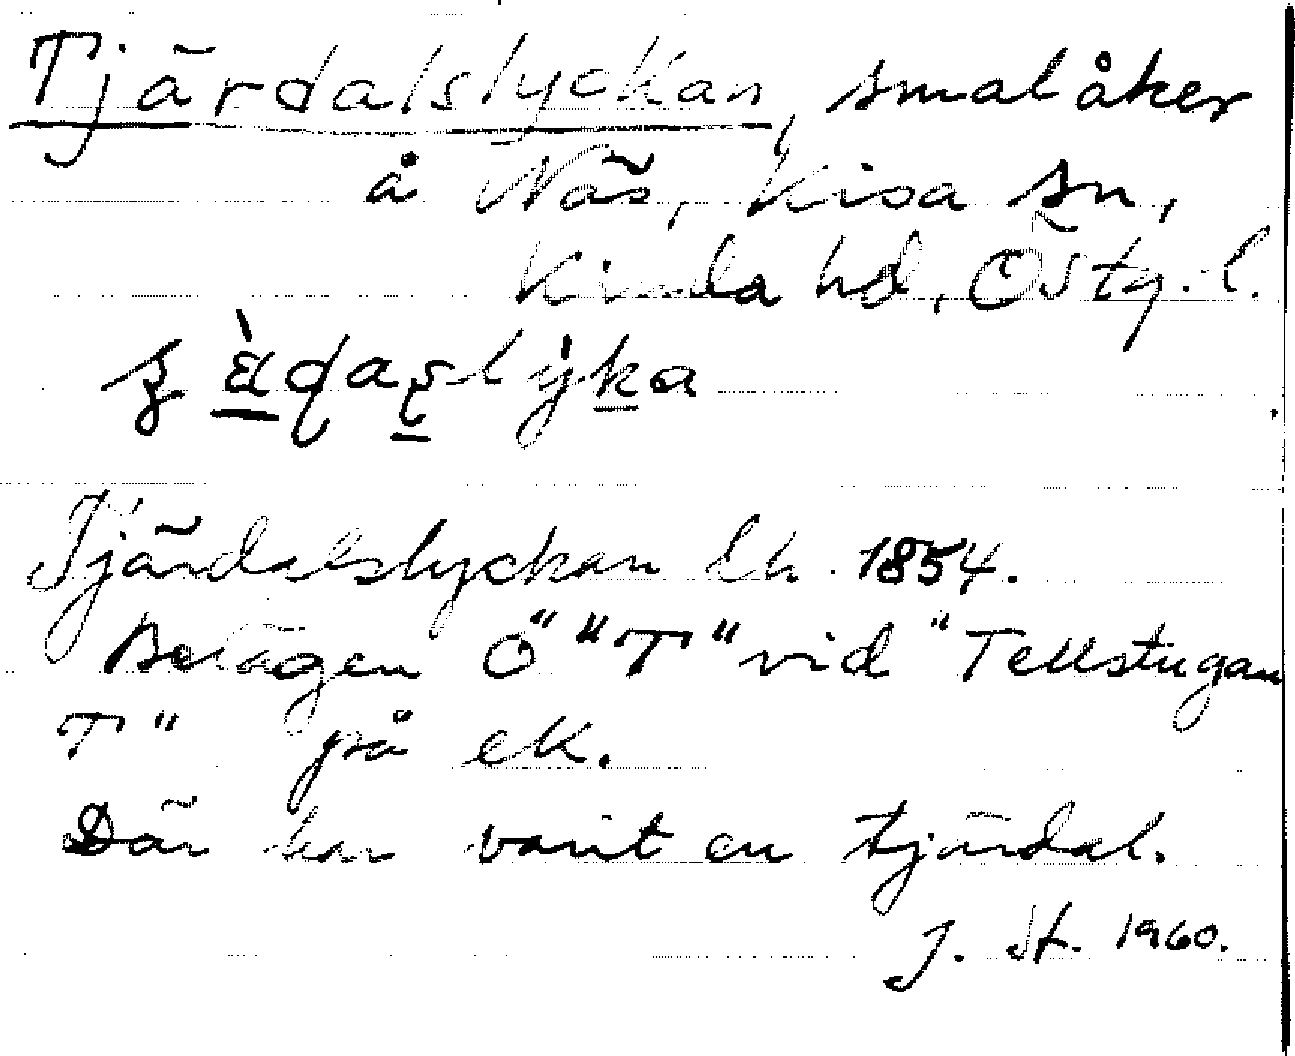 Tjärdalslyckan, smal åker
å Näs, Kisa sn,
Kinda hd, Östg. l.
Tjärdalslyckan Lh. 1854.
Belägen Ö" "T" vid "Tellstugan
T" på ek.
Där har varit en tjärdal.
J. St. 1960.